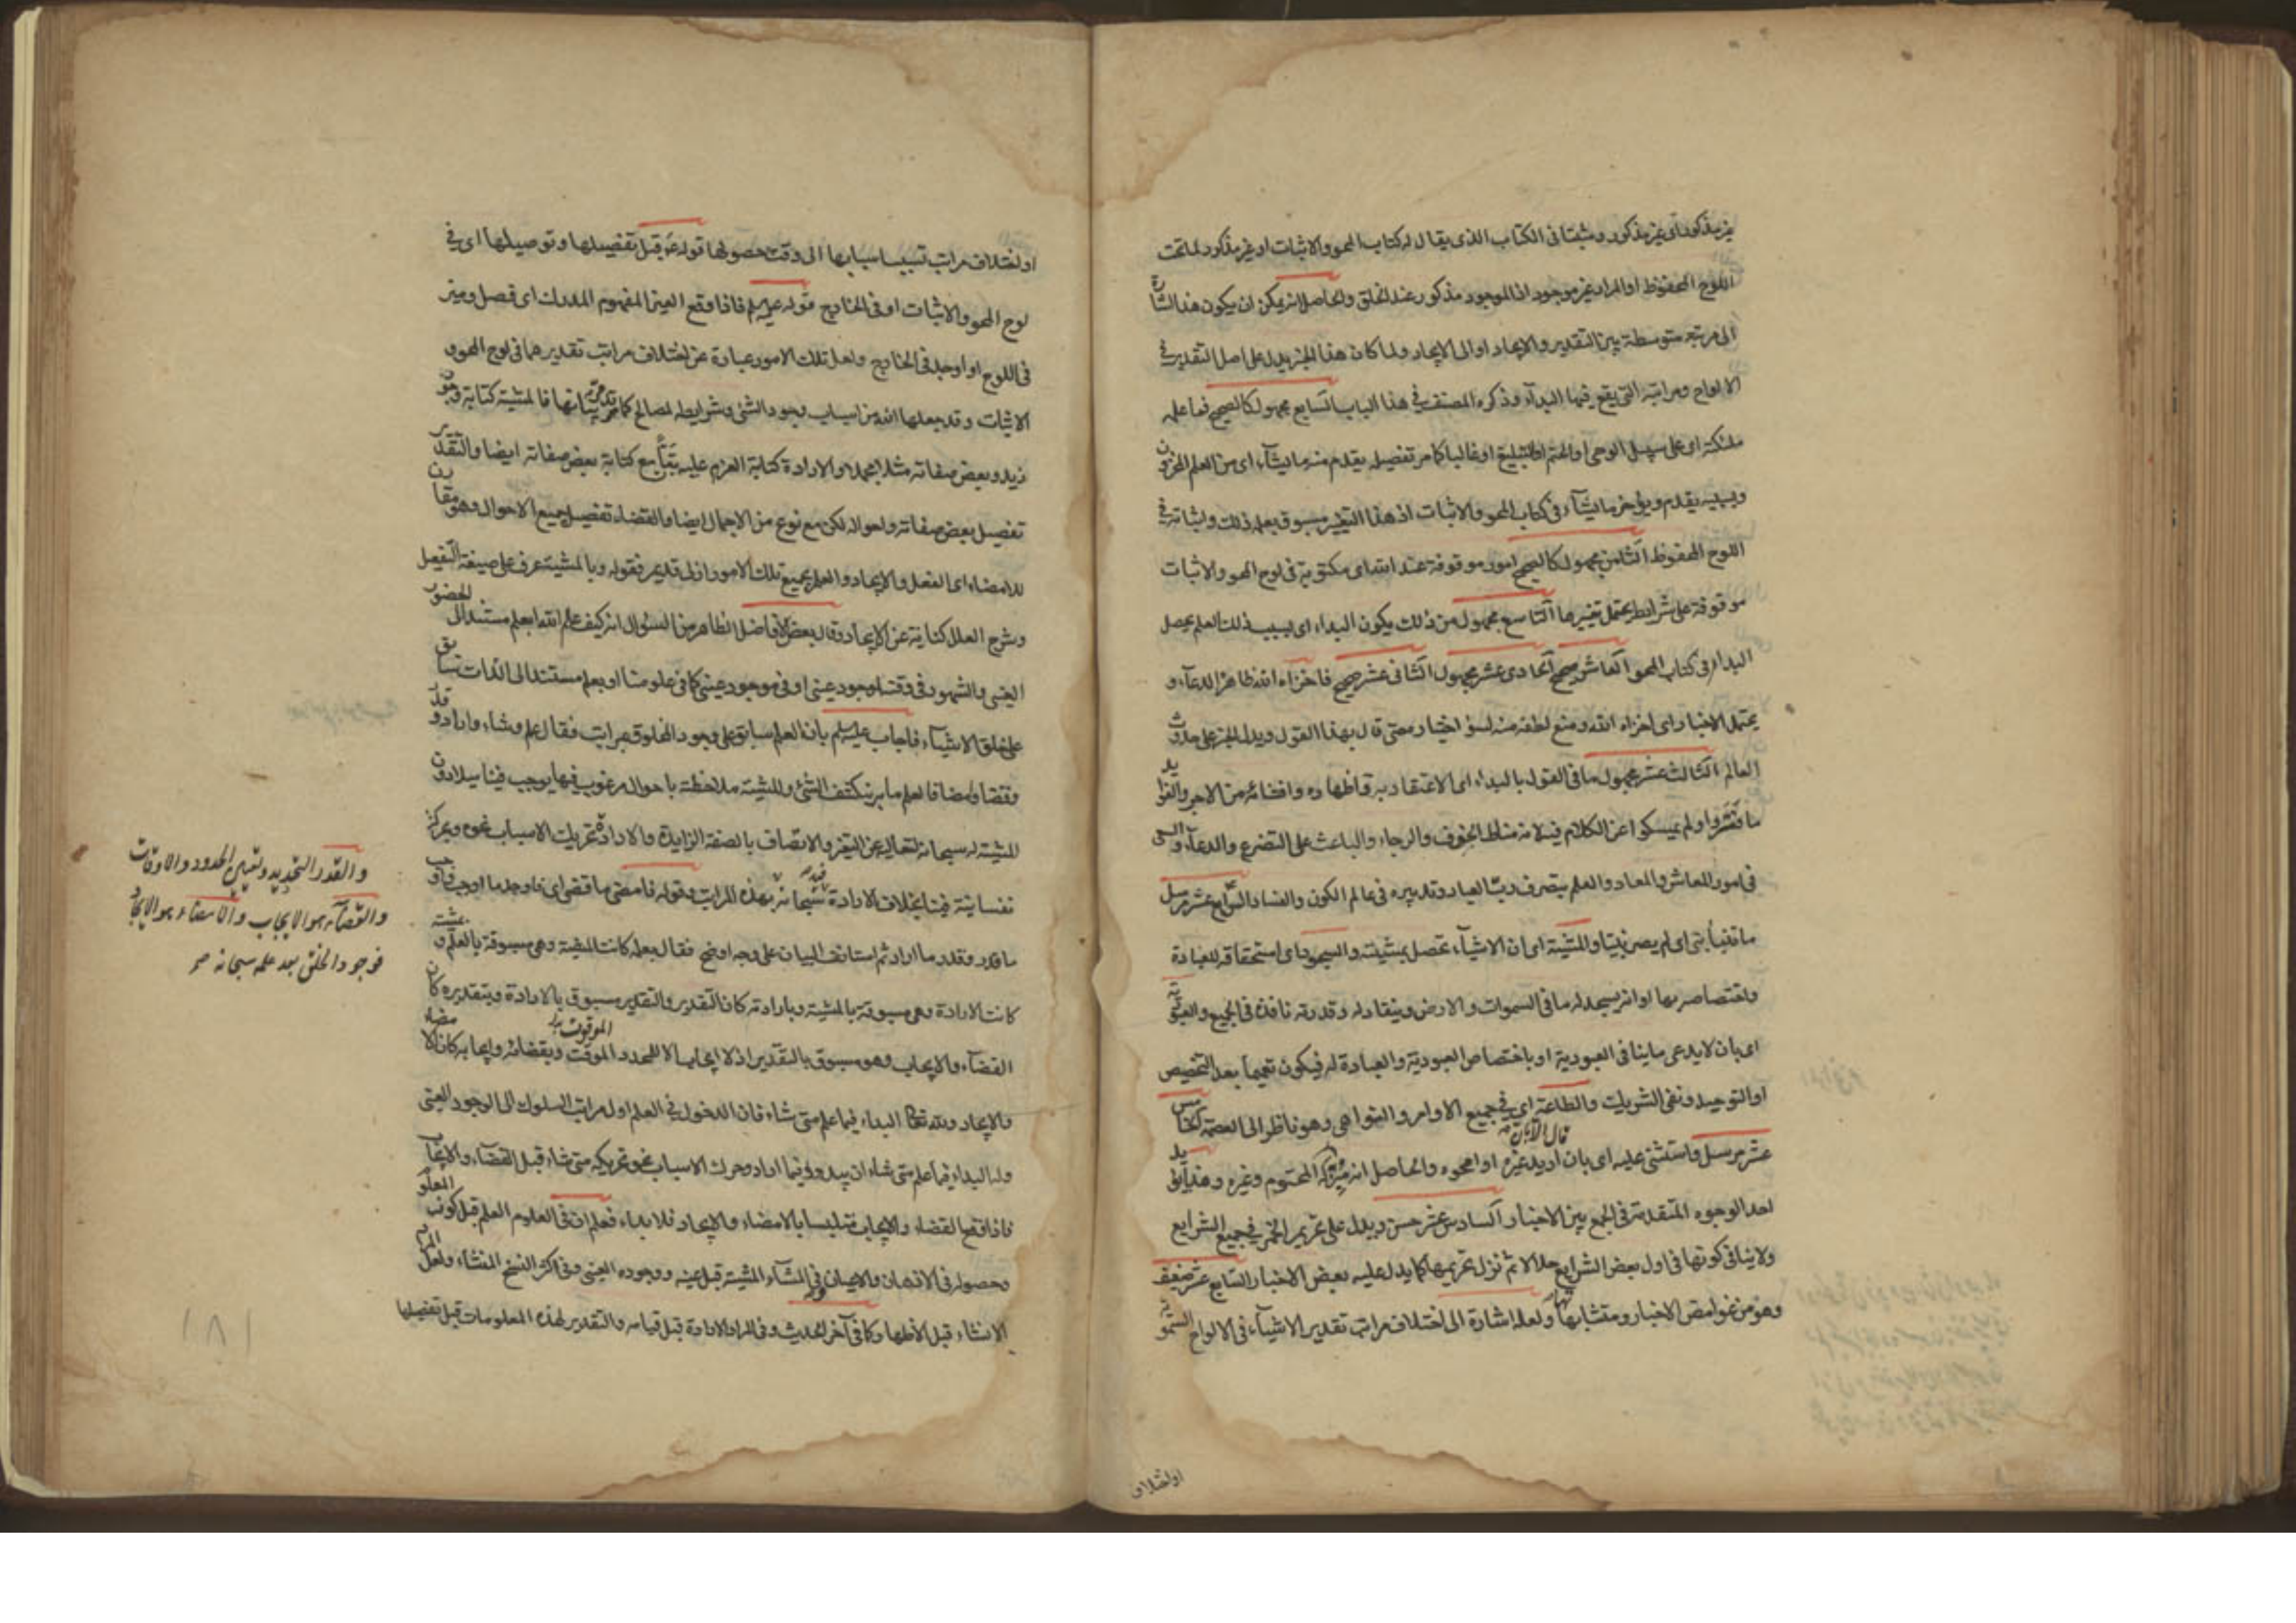 غير مذكور أي غير مذكور ومثبتا فى الكتاب الذى يقال له كتاب المحو والاثبات او غير مذكور لما تحت
اللوح المحفوظ او المراد غير موجود اذ الموجود مذكور عند الخلق والحاصل انه يمكن ان يكون هذا اشارة
الى مرتبة متوسطة بين التقدير والايجاد او الى الايجاد ولما كان هذا الخبر يدل على اصل التقدير في
الالواح ومراتبه التى يقع فيها البدآء وذكره المصنف في هذا الباب السابع مجهول كالصحيح فما علمه
ملئكته اى على سبيل الوحى او الحتم او التبليغ او غالبا كما مر تفصيله يقدم منه ما يشآء اى من العلم المخزون
وبسببه يقدم ويؤخر ما يشآء فى كتاب المحو والاثبات اذ هذا التغيير مسبوق بعلمه ذلك واثباته في
اللوح المحفوظ الثامن مجهول كالصحيح امور موقوفة عند الله اى مكتوبة فى لوح المحو والاثبات
موقوفة على شرايط يحتمل تغييرها التاسع مجهول من ذلك يكون البداء اى بسبب ذلك العلم يحصل
البداء فى كتاب المحو العاشر صحيح الحادى عشر مجهول الثانى عشر صحيح فاخزاه الله ظاهره الدعآء و
يحتمل الاخبار اى اخزاه الله ومنع لطفه منه لسوء اختياره حتى قال بهذا القول ويدل الخبر على حدوث
العالم الثالث عشر مجهول ما فى القول بالبداء اى الاعتقاد به واظهاره وافشائه من الاجر والفوايد
ما فتروا ولم يمسكوا عن الكلام فيه لانه مناط الخوف والرجاء والباعث على التضرع والدعآء والسعى
فى امور المعاش والمعاد والعلم بتصرف رب العباد وتدبيره فى عالم الكون والفساد الرابع عشر مرسل
ما تنبأ نبى اى لم يصر نبيا والمشية اى ان الاشيآء تحصل بمشيته والسجود اى استحقاقه للعبادة
واختصاصه بها او انه يسجد له ما فى السموات والارض وينقاد له وقدرته نافذة فى الجميع والعبودية
اى بان لا يدعى ما ينافى العبودية او باختصاص العبودية والعبادة له فيكون تعميما بعد التخصيص
او التوحيد ونفى الشريك والطاعة اى فى جميع الاوامر والنواهى وهو ناظر الى العصمة الخامس
عشر مرسل واستثنى عليه اى بان قال الا ان اريد غيره او امحوه والحاصل انه ميز له المحتوم وغيره وهذا يؤيد
احد الوجوه المتقدمة فى الجمع بين الاخبار السادس عشر حسن ويدل على تحريم الخمر فى جميع الشرايع
ولا ينافى كونها فى اول بعض الشرايع حلالا ثم نزل تحريمها كما يدل عليه بعض الاخبار السابع عشر ضعيف
وهو من غوامض الاخبار ومتشابهاتها ولعله اشارة الى اختلاف مراتب تقدير الاشيآء فى الالواح السماوية
او اختلاف
او اختلاف مراتب تسبب اسبابها الى وقت حصولها قوله ع قبل تفصيلها وتوصيلها اى في
لوح المحو والاثبات او فى الخارج قوله عليه السلم فاذا وقع العين المفهوم المدرك اى فصل وميز
فى اللوح او اوجد فى الخارج ولعل تلك الامور عبارة عن اختلاف مراتب تقديرهما فى لوح المحو و
الاثبات وقد جعلها الله من اسباب وجود الشئ وشرايطه لمصالح كما قد مر بيانها فالمشية كتابة وجود
زيد وبعض صفاته مثلا مجملا والارادة كتابة العزم عليه بتا مع كتابة بعض صفاته ايضا والتقدير
تفصيل بعض صفاته واحواله لكن مع نوع من الاجمال ايضا والقضاء تفصيل جميع الاحوال وهو مقارن
للامضاء اى الفعل والايجاد والعلم بجميع تلك الامور ازلى قديم فقوله وبالمشية عرف على صيغة التفعيل
وشرح العلل كناية عن الايجاد وقال بعض الافاضل الظاهر من السؤال انه كيف علم الله ابعلم مستند الى الحضور
العينى والشهود فى وقت الوجود عينى او فى موجود عينى كما فى علومنا او بعلم مستند الى الذات سابق
على خلق الاشيآء فاجاب عليه السلم بان العلم سابق على وجود المخلوق بمراتب فقال علم وشاء واراد وقدر
وقضا وامضا فالعلم ما به ينكشف الشئ والمشية ملاحظته باحوال مرغوب فيها يوجب فينا ميلا دون
المشية له سبحانه لتعاليه عن التغير والاتصاف بالصفة الزايدة والارادة تحريك الاسباب نحوه وبحركة
نفسانية فينا بخلاف الارادة فيه سبحانه بهذه المراتب وقوله فامضى ما قضى اى فاوجد ما اوجب واوجب
ما قدر وقدر ما اراد ثم استانف البيان على وجه اوضح فقال بعلمه كانت المشية وهى مسبوقة بالعلم وبمشيته
كانت الارادة وهى مسبوقة بالمشية وبارادته كان التقدير والتقدير مسبوق بالارادة وبتقديره كان
القضآء والايجاب وهو مسبوق بالتقدير اذ لا ايجاب الا للمحدد الموقت وبقضائه وايجابه كان الامضاء
والايجاد ولله تعالى البداء فيما علم متى شاء فان الدخول فى العلم اول مراتب السلوك الى الوجود العينى
وله البداء فيما علم متى شاء ان يبدو وفيما اراد وحرك الاسباب نحو تحريكه متى شاء قبل القضآء والايجاب
فاذا وقع القضاء والايجاب متلبسا بالامضاء والايجاد فلا بداء فعلم ان فى العلوم العلم قبل كون المعلوم
وحصوله فى الاذهان والاعيان وفى المشآء المشية قبل عينه ووجوده العينى وفى اكثر النسخ المنشاء ولعل المراد
الانشاء قبل الاظهار كما فى آخر الحديث وفى المراد الارادة قبل قيامه والتقدير لهذه المعلومات قبل تفصيلها
والقدر التحديد وتعيين الحدود والاوقات
والقضآء هو الايجاب والامضاء هو الايجاد
فوجود الخلق بعد علمه سبحانه صح
١٨١